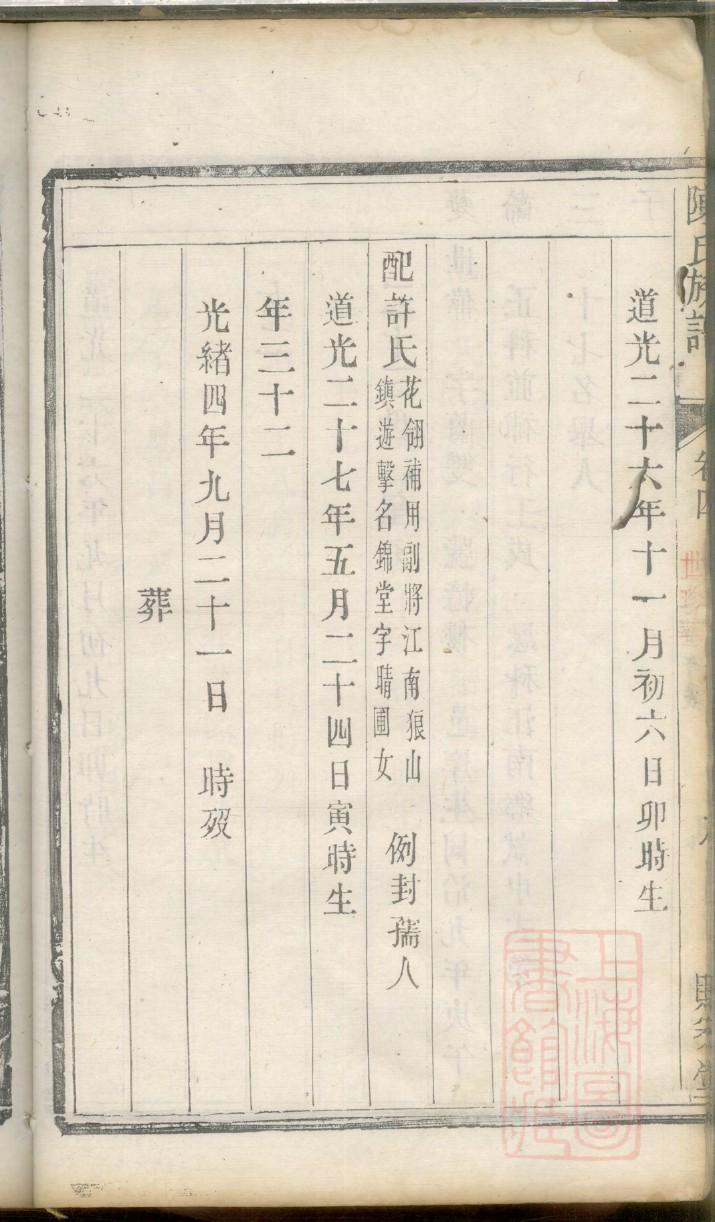 陳氏族譜
卷四
世系
道光二十六年十一月初六日卯時生
配許氏花翎補用副將江南狼山
鎮遊擊名錦堂字晴圃女
例封孺人
道光二十七年五月二十四日寅時生
年三十二
光緒四年九月二十一日 時歿
葬
上海圖
書館藏